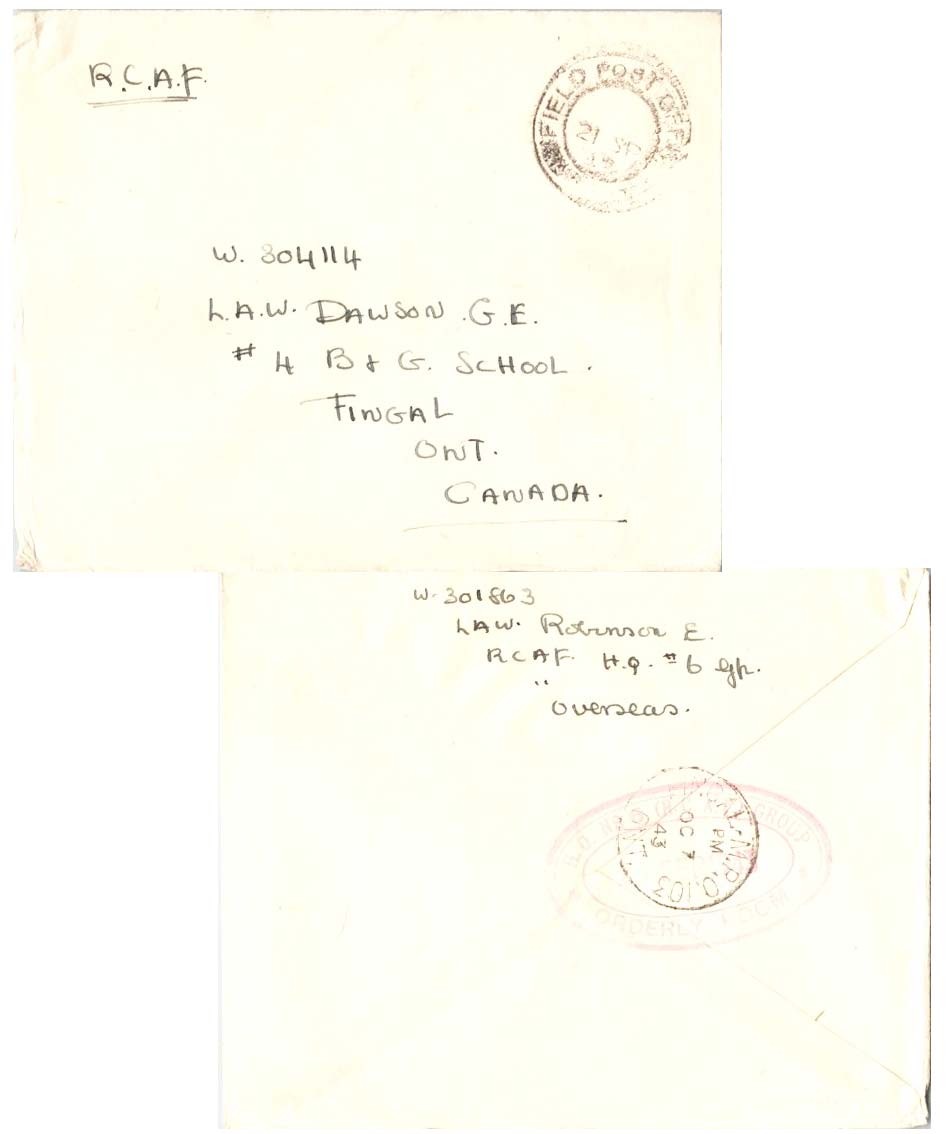 R.C.A.F.
FIELD POST OFF
21 SP
43
W. 304114
L.A.W. DAWSON .G.E.
# 4 B & G. SCHOOL .
FINGAL
ONT.
CANADA.
W. 301863
LAW. Robinson E.
RCAF. H.Q. # 6 Gp.
"
Overseas.
FINGAL-M.P.O.103
PM
OC 7
43
ONT.
H.Q. No GROUP
ORDERLY